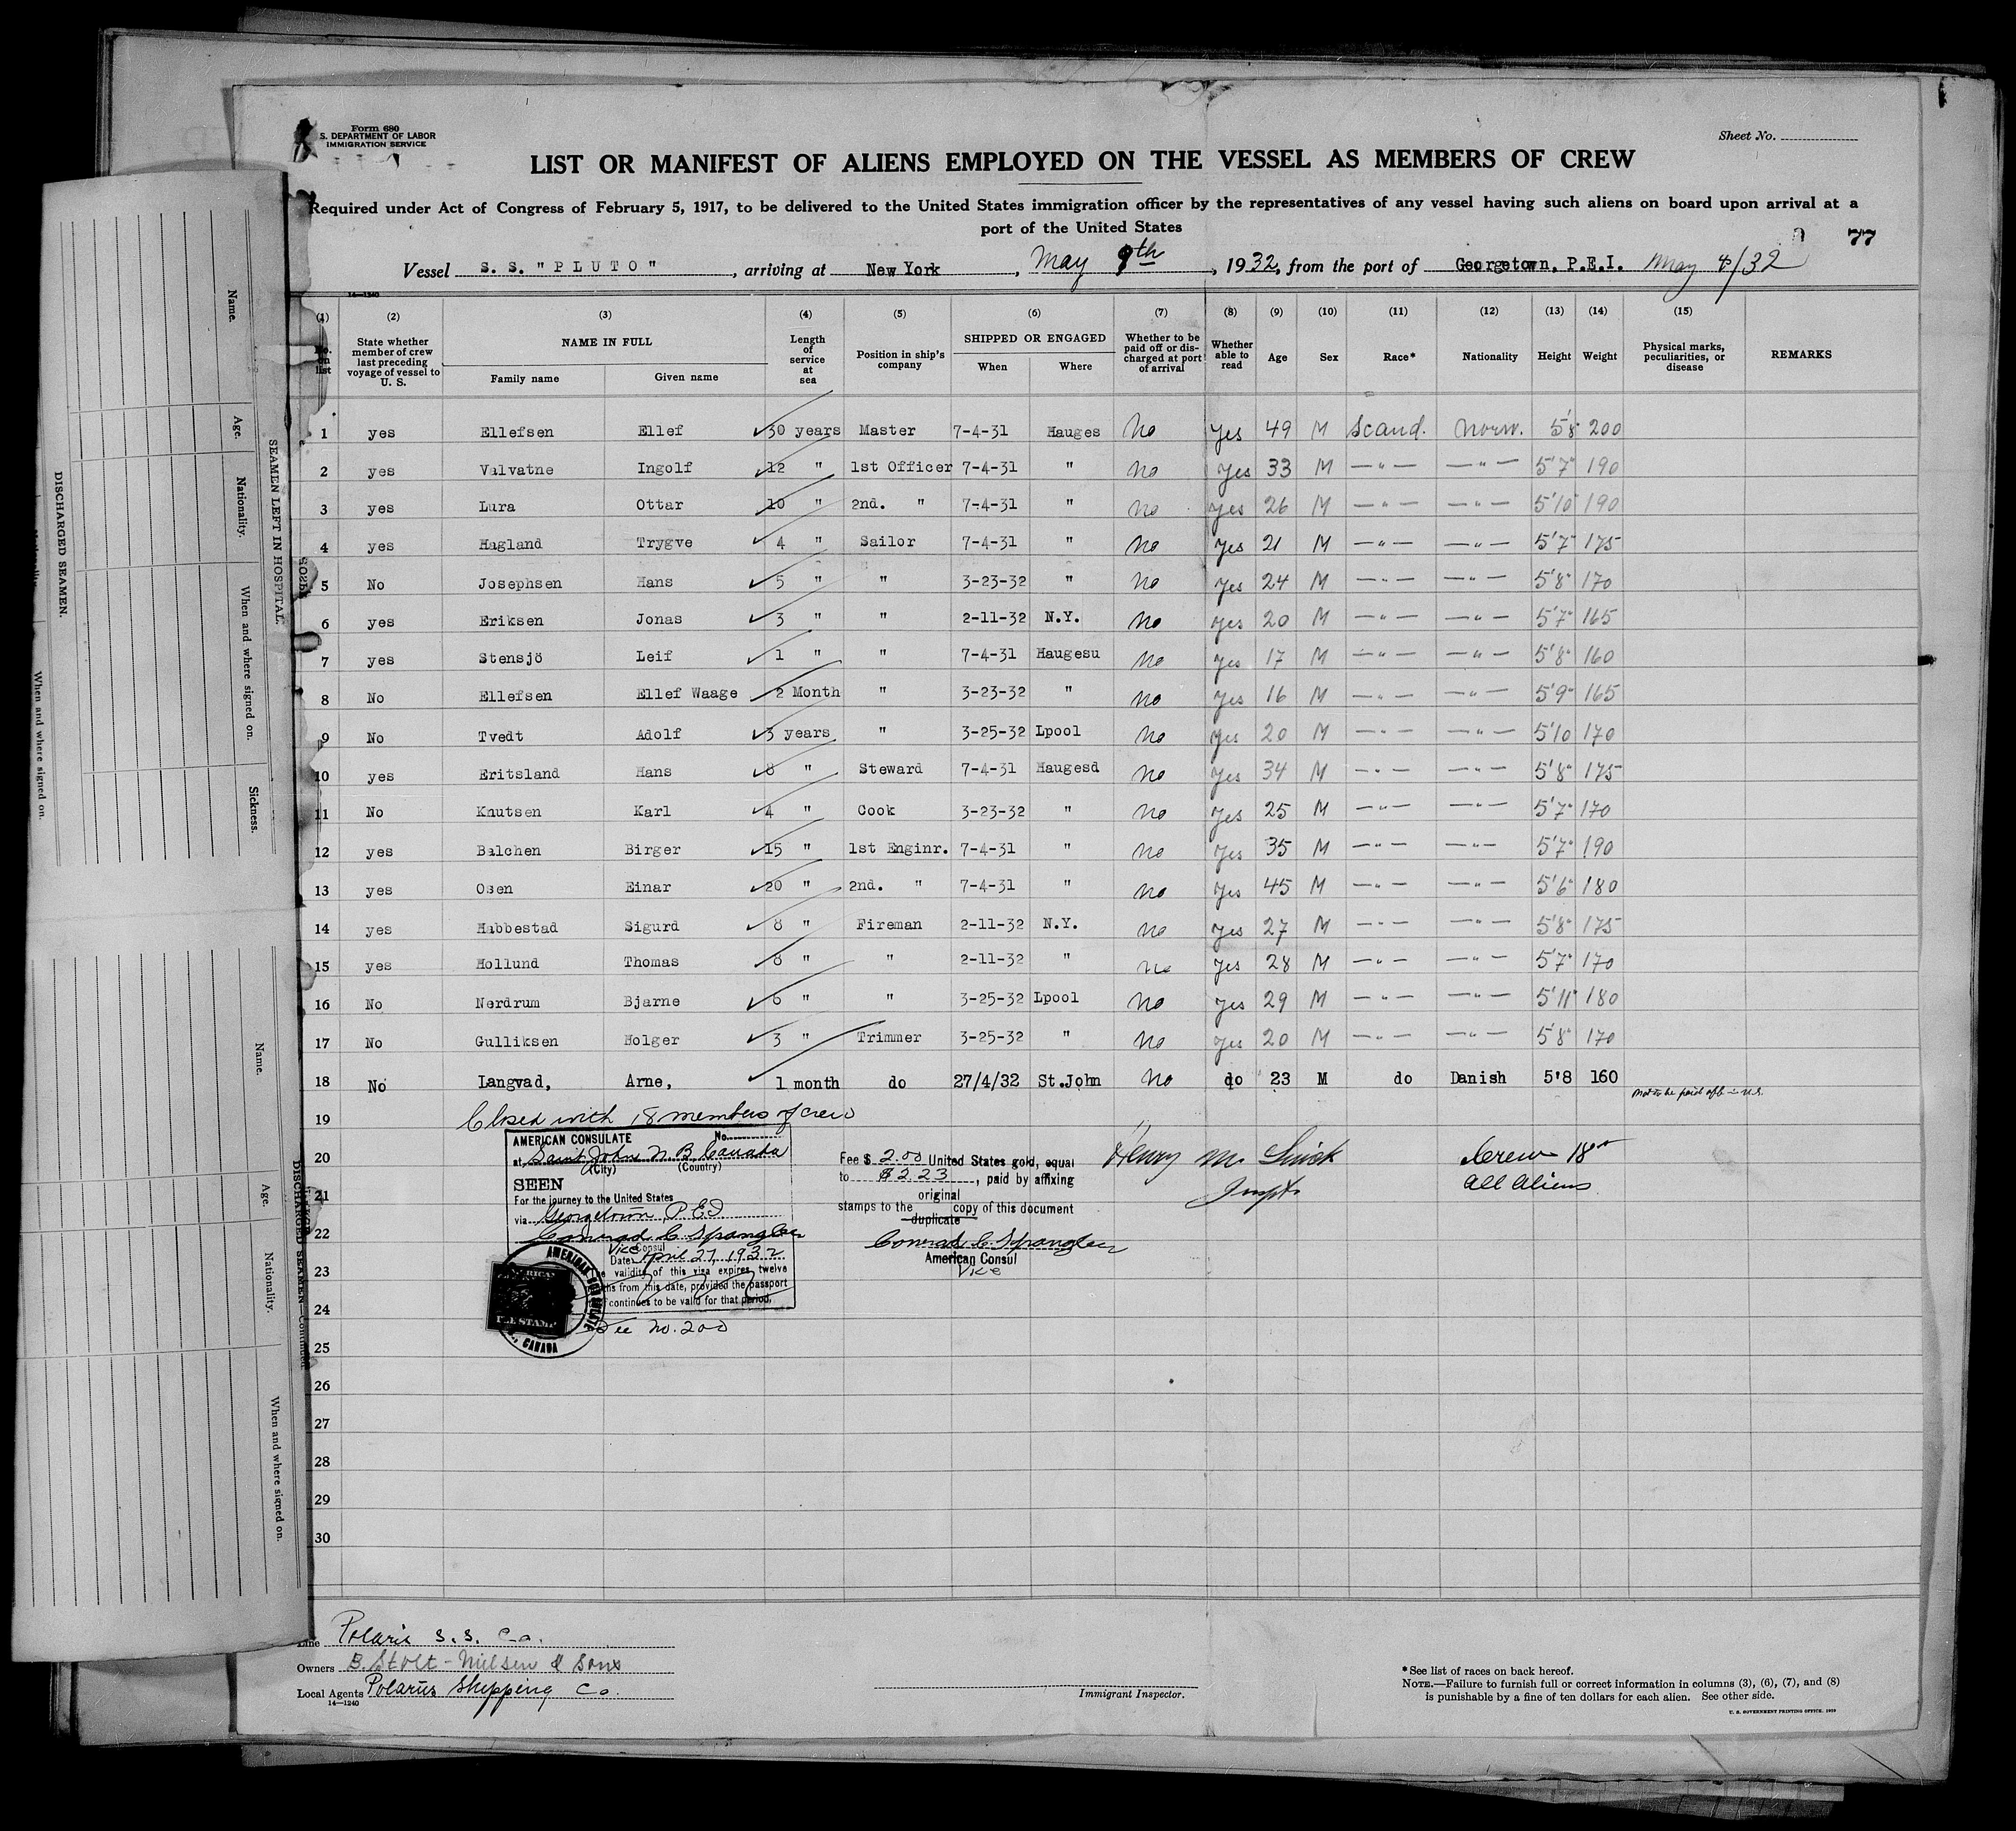 Form 680
S. DEPARTMENT OF LABOR
IMMIGRATION SERVICE
Sheet No.
LIST OR MANIFEST OF ALIENS EMPLOYED ON THE VESSEL AS MEMBERS OF CREW
Required under Act of Congress of February 5, 1917, to be delivered to the United States immigration officer by the representatives of any vessel having such aliens on board upon arrival at a
port of the United States
77
Vessel S. S. "PLUTO", arriving at New York, May 9th, 1932, from the port of Georgetown, P.E.I. May 4/32
14—1240
(1) (2) (3) (4) (5) (6) (7) (8) (9) (10) (11) (12) (13) (14) (15)
No. on list | State whether member of crew last preceding voyage of vessel to U. S. | NAME IN FULL Family name Given name | Length of service at sea | Position in ship's company | SHIPPED OR ENGAGED When Where | Whether to be paid off or discharged at port of arrival | Whether able to read | Age | Sex | Race* | Nationality | Height | Weight | Physical marks, peculiarities, or disease | REMARKS
1 yes Ellefsen Ellef 30 years Master 7-4-31 Hauges No Yes 49 M Scand. Norw. 5'8 200
2 yes Valvatne Ingolf 12 " 1st Officer 7-4-31 " No Yes 33 M —"— —"— 5'7" 190
3 yes Lura Ottar 10 " 2nd. " 7-4-31 " No Yes 26 M —"— —"— 5'10" 190
4 yes Hagland Trygve 4 " Sailor 7-4-31 " No Yes 21 M —"— —"— 5'7" 175
5 No Josephsen Hans 5 " " 3-23-32 " No Yes 24 M —"— —"— 5'8" 170
6 yes Eriksen Jonas 3 " " 2-11-32 N.Y. No Yes 20 M —"— —"— 5'7" 165
7 yes Stensjö Leif 1 " " 7-4-31 Haugesu No Yes 17 M —"— —"— 5'8" 160
8 No Ellefsen Ellef Waage 2 Month " 3-23-32 " No Yes 16 M —"— —"— 5'9" 165
9 No Tvedt Adolf 3 years " 3-25-32 Lpool No Yes 20 M —"— —"— 5'10 170
10 yes Eritsland Hans 8 " Steward 7-4-31 Haugesd No Yes 34 M —"— —"— 5'8" 175
11 No Knutsen Karl 4 " Cook 3-23-32 " No Yes 25 M —"— —"— 5'7" 170
12 yes Balchen Birger 15 " 1st Enginr. 7-4-31 " No Yes 35 M —"— —"— 5'7" 190
13 yes Osen Einar 20 " 2nd. " 7-4-31 " No Yes 45 M —"— —"— 5'6" 180
14 yes Habbestad Sigurd 8 " Fireman 2-11-32 N.Y. No Yes 27 M —"— —"— 5'8" 175
15 yes Hollund Thomas 8 " " 2-11-32 " No Yes 28 M —"— —"— 5'7" 170
16 No Nerdrum Bjarne 6 " " 3-25-32 Lpool No Yes 29 M —"— —"— 5'11" 180
17 No Gulliksen Holger 3 " Trimmer 3-25-32 " No Yes 20 M —"— —"— 5'8" 170
18 No Langvad, Arne, 1 month do 27/4/32 St.John No do 23 M do Danish 5'8 160 Not to be paid off in U.S.
19
Closed with 18 members of crew
20
21
22
23
24
25
26
27
28
29
30
AMERICAN CONSULATE No.
at Saint John N. B. Canada
(City) (Country)
SEEN
For the journey to the United States
via Georgetown P E I
Conrad C. Spangler
Vice Consul
Date April 27, 1932
The validity of this visa expires twelve
months from this date, provided the passport
continues to be valid for that period.
Fee No. 200
AMERICAN CONSULATE
CANADA
Fee $ 2.00 United States gold, equal
to $2.23, paid by affixing
original
stamps to the copy of this document
duplicate
Conrad C. Spangler
American Consul
Vice
Henry M.
Inspt.
Crew 18
All Aliens
Line Polaris S. S. Co.
Owners B. Stolt-Nielsen & Sons
Local Agents Polarus Shipping Co.
14—1240
Immigrant Inspector.
*See list of races on back hereof.
NOTE.—Failure to furnish full or correct information in columns (3), (6), (7), and (8)
is punishable by a fine of ten dollars for each alien. See other side.
U. S. GOVERNMENT PRINTING OFFICE: 1929
SEAMEN LEFT IN HOSPITAL.
Name. Age. Nationality. When and where signed on. Sickness.
DISCHARGED SEAMEN.
When and where signed on.
DISCHARGED SEAMEN—Continued.
Name. Age. Nationality. When and where signed on.